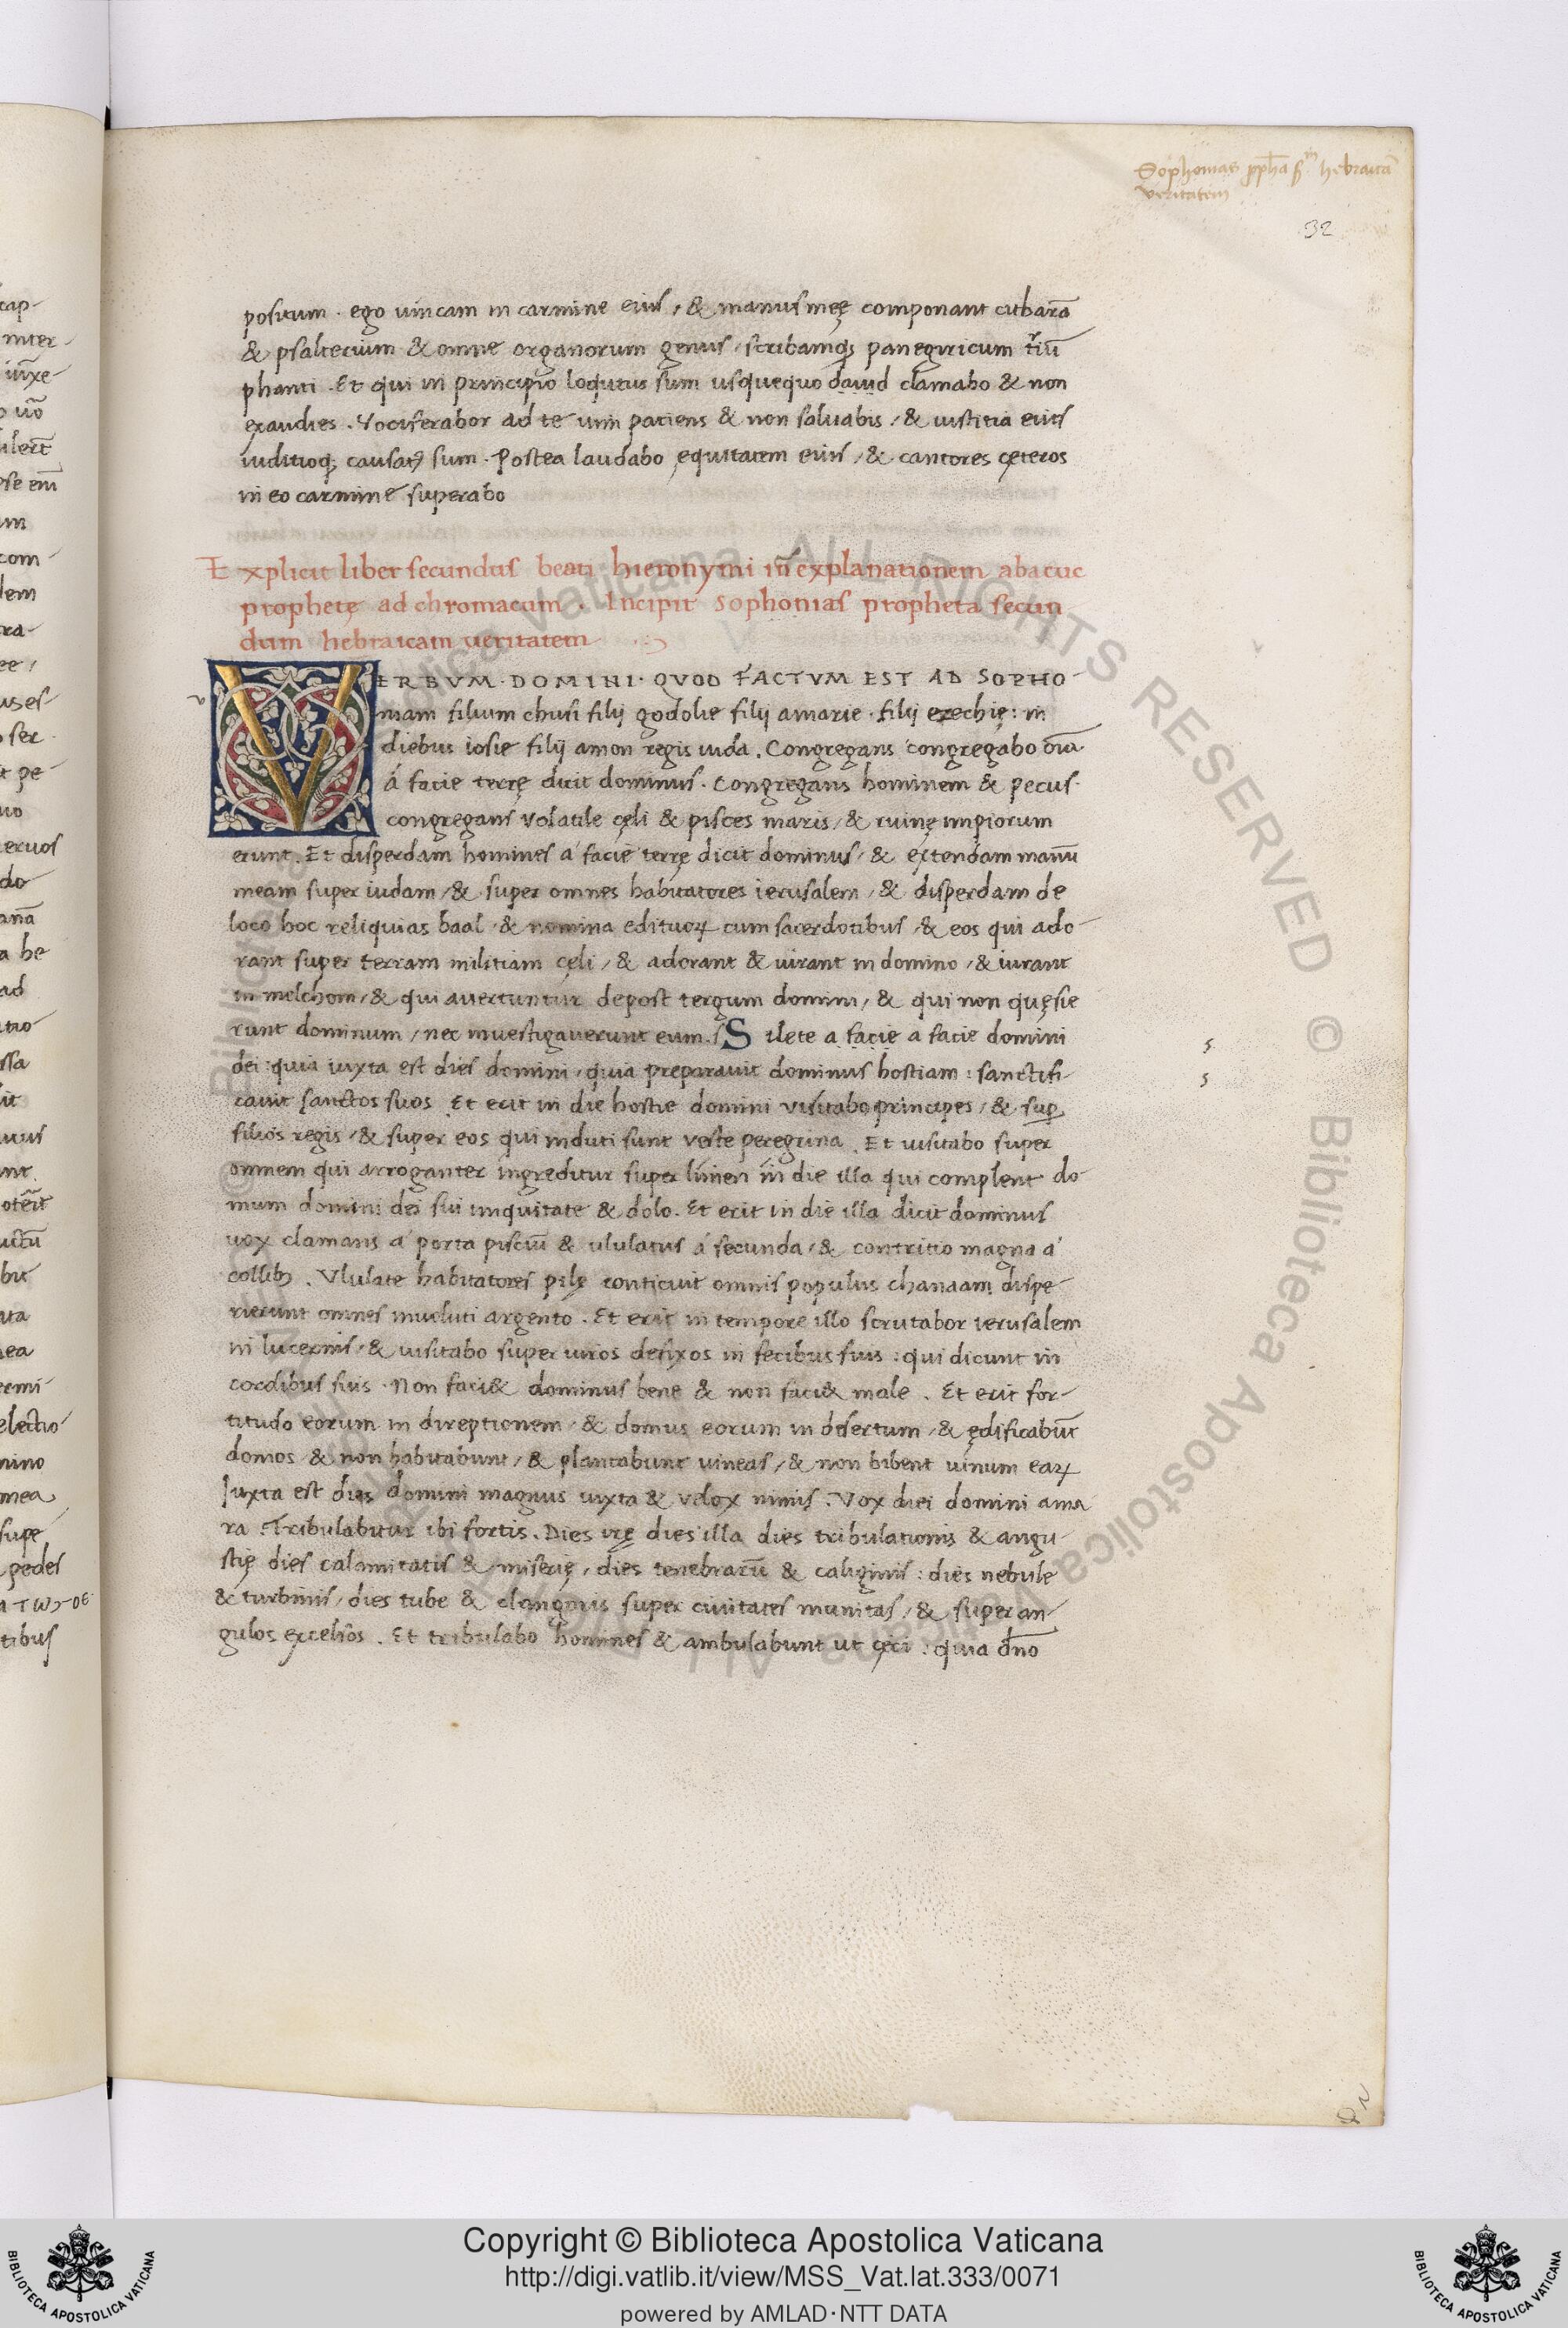 Sophonias ppħa s̄m hebraicā
veritatem
32
positum. ego uincam in carmine eius, & manus meę componant citharā
& psalterium & omne organorum genus, scribamq; panegiricum
phanti. Et qui in principio loqutus sum usquequo dauid clamabo & non
exaudies. Vociferabor ad te uim patiens & non saluabis, & iustitia eius
iuditioq; causatꝰ sum. Postea laudabo equitatem eius, & cantores cęteros
in eo carmine superabo
Explicit liber secundus beati hieronymi in explanationem abacuc
prophetę ad chromacum. Incipit sophonias propheta secun
dum hebraicam ueritatem
VERBVM·DOMINI·QVOD FACTVM EST AD SOPHO-
niam filium chusi filij godolie filij amarie. filij ezechię: in
diebus iosie filij amon regis iuda. Congregans congregabo oīa
á facie terrę dicit dominus. Congregans hominem & pecus.
congregans volatile cęli & pisces maris, & ruinę impiorum
erunt. Et disperdam homines a facie terrę dicit dominus, & extendam manū
meam super iudam, & super omnes habitatores ierusalem, & disperdam de
loco hoc reliquias baal, & nomina edituoꝝ cum sacerdotibus, & eos qui ado-
rant super terram militiam cęli, & adorant & iurant in domino, & iurant
in melchom, & qui auertuntur de post tergum domini, & qui non quęsie
runt dominum, nec inuestigauerunt eum. Silete a facie a facie domini
dei: quia iuxta est dies domini, quia preparauit dominus hostiam: sanctifi-
cauit sanctos suos. Et erit in die hostie domini visitabo principes, & suꝑ
filios regis, & super eos qui induti sunt veste peregrina. Et uisitabo super
omnem qui arroganter ingreditur super limen in die illa qui complent do
mum domini dei sui iniquitate & dolo. Et erit in die illa dicit dominus
uox clamans á porta pisciū & ululatus á secunda, & contritio magna a
collibꝫ. Vlulate habitatores pilę conticuit omnis populus chanaam dispe-
rierunt omnes inuoluti argento. Et erit in tempore illo scrutabor ierusalem
in lucernis, & uisitabo super uiros defixos in fecibus suis: qui dicunt in
cordibus suis. Non faci& dominus bene & non faci& male. Et erit for-
titudo eorum in direptionem, & domus eorum in desertum, & ędificabūt
domos & non habitabunt, & plantabunt uineas, & non bibent uinum eaꝝ
Iuxta est dies domini magnus iuxta & velox nimis. Vox diei domini ama
ra. Tribulabitur ibi fortis. Dies irę dies illa dies tribulationis & angu-
stię dies calamitatis & miserię, dies tenebrarū & caliginis: dies nebule
& turbinis, dies tube & clangoris super ciuitates munitas, & super an-
gulos excelsos. Et tribulabo homines & ambulabunt ut cęci: quia dn̄o
Copyright © Biblioteca Apostolica Vaticana
http://digi.vatlib.it/view/MSS_Vat.lat.333/0071
powered by AMLAD·NTT DATA
BIBLIOTECA APOSTOLICA VATICANA
BIBLIOTECA APOSTOLICA VATICANA